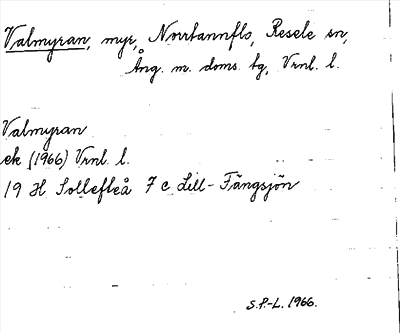 Valmyran, myr, Norrtannflo, Resele sn,
Ång. m. doms. tg, Vrnl. l.
Valmyran
ek (1966) Vrnl. l.
19 H Sollefteå 7 c Lill-Fängsjön
S.P.-L. 1966.